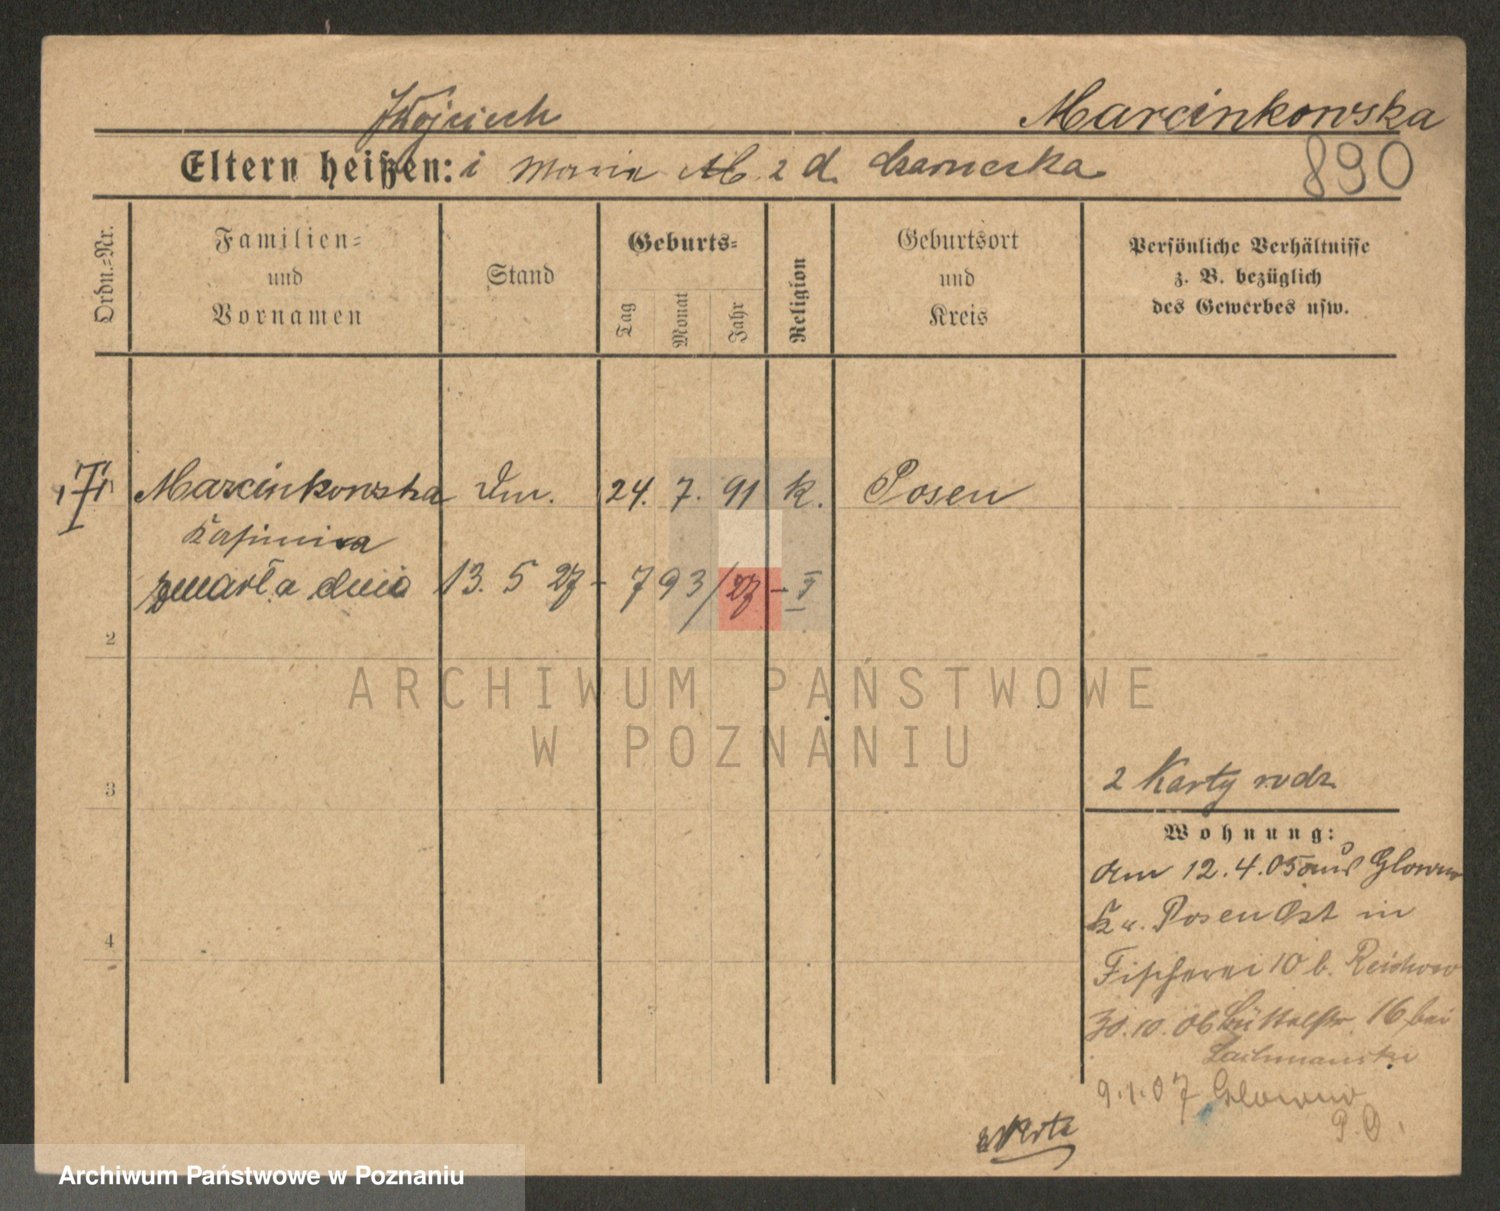 Wojciech Marcinkowska
Eltern heißen: i Maria M. 2 d. Czarnecka 890
Ordn.-Nr.
Familien-
und
Vornamen
Stand
Geburts-
Tag
Monat
Jahr
Religion
Geburtsort
und
Kreis
Persönliche Verhältnisse
z. B. bezüglich
des Gewerbes usw.
Marcinkowska Dm. 24. 7. 91 k. Posen
Kasimira
zmarła dnia 13. 5 27 - 793/27 - I
2
3
4
ARCHIWUM PAŃSTWOWE
W POZNANIU
2 Karty rodz.
Wohnung:
Am 12.4.05 aus Glowno
Kr. Posen Ost in
Fischerei 10 b.
30.10.06 Büttelstr. 16 bei
9.1.07 Glowno
P. O.
Archiwum Państwowe w Poznaniu